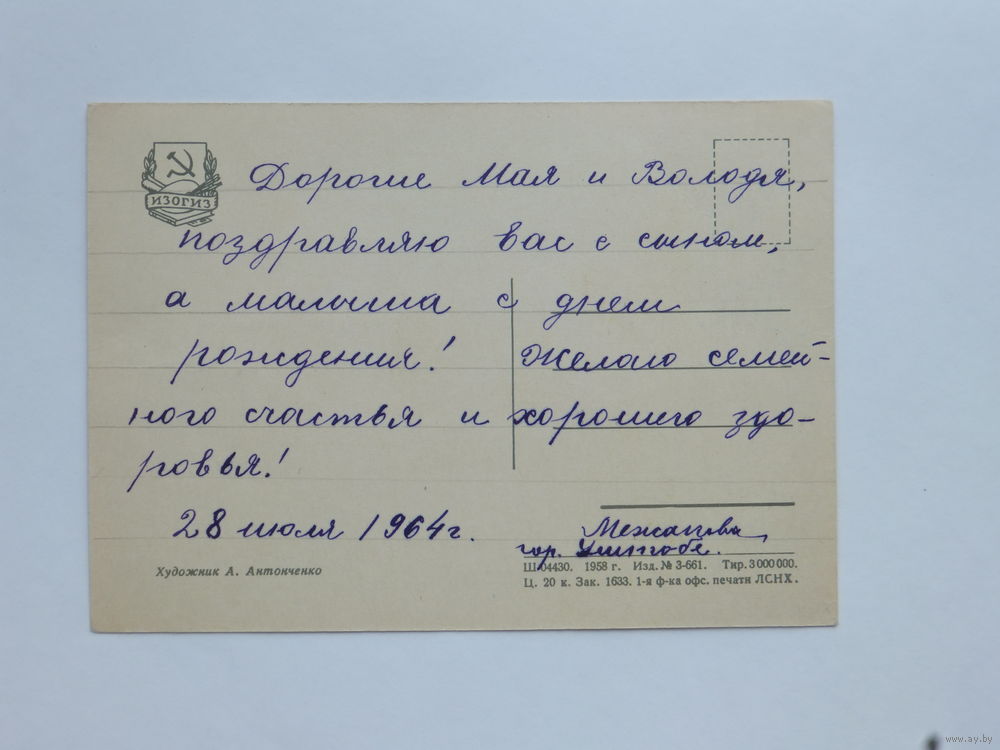 ИЗОГИЗ
Дорогие Мая и Володя,
поздравляю вас с сыном,
а малыша с днем
рождения! Желаю семей-
ного счастья и хорошего здо-
ровья!
28 июля 1964 г.
гор. Уштобе.
Художник А. Антонченко
Ш 04430. 1958 г. Изд. № 3-661. Тир. 3 000 000.
Ц. 20 к. Зак. 1633. 1-я ф-ка офс. печати ЛСНХ.
www.ay.by